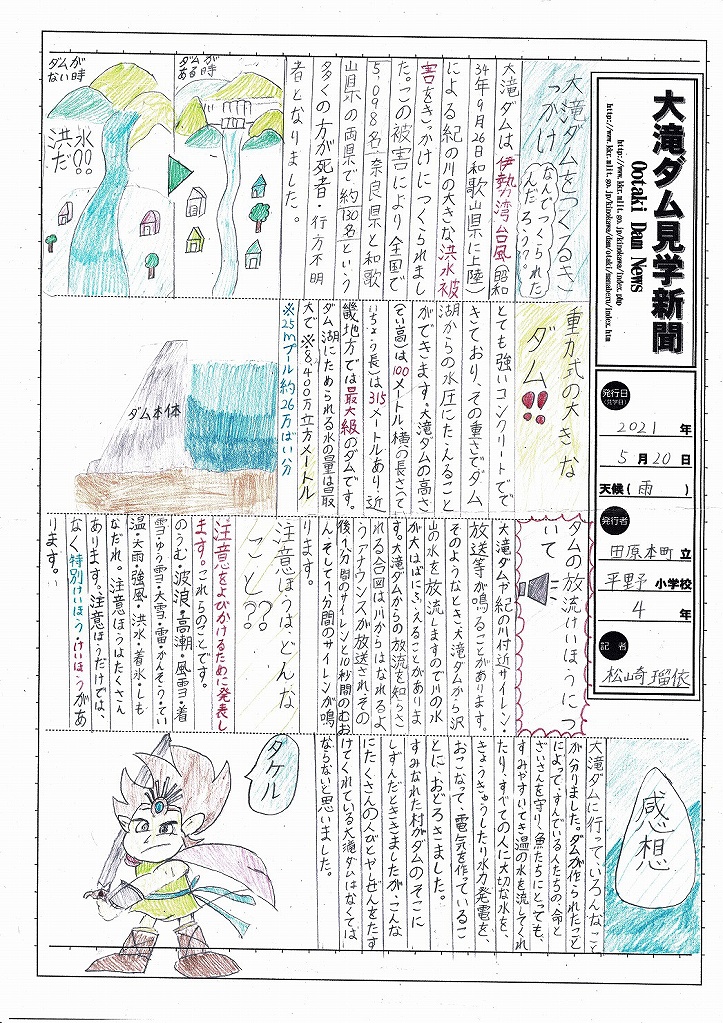 大滝ダム見学新聞
Ootaki Dam News
発行日
(見学日)
2021年
5月20日
天候(雨)
発行者
田原本町立
平野小学校
4年
記者
松崎瑠依
大滝ダムをつくるき
っかけ
なんでつくられた
んだろう??
大滝ダムは、伊勢湾台風(昭和
34年9月26日和歌山県に上陸)
による紀の川の大きな洪水被
害をきっかけにつくられまし
た。この被害により全国で
5,098名(奈良県と和歌
山県の両県で約130名)という
多くの方が死者・行方不明
者となりました。
ダムが
ある時
ダムが
ない時
洪水
だ!!
重力式の大きな
ダム!!
とても強いコンクリートでで
きており、その重さでダム
湖からの水圧にたえること
ができます。大滝ダムの高さ
(てい高)は100メートル、横の長さ(て
いちょう長)は315メートルあり、近
畿地方では最大級のダムです。
ダム湖にためられる水の量は最
大で※8,400万立方メートル
※25mプール約26万ばい分
ダム本体
ダムの放流けいほうにつ
いて
大滝ダムや紀の川付近サイレン
放送等が鳴ることがあります。
そのようなとき、大滝ダムから沢
山の水を放流しますので川の水
が大はばにふえることがありま
す。大滝ダムからの放流を知らさ
れる合図は川からはなれるよ
うアナウンスが放送されその
後1分間のサイレンと10秒間のむお
ん、そして1分間のサイレンが鳴
ります。
注意ほうは、どんな
こと??
注意をよびかけるために発表し
ます。これらのことです。
のうむ・波浪・高潮・風雪・着
雪・ゆう雪・大雪・雷・かんそう・てい
温・大雨・強風・洪水・着氷・しも
なだれ。注意ほうはたくさん
あります。注意ほうだけでは、
なく特別けいほう・けいほうがあ
ります。
感想
大滝ダムに行っていろんなこと
が分りました。ダムが作られたこと
によって、すんでいる人たちの、命と
ざいさんを守り、魚たちにとっても、
すみやすいてき温の水を流してくれ
たり、すべての人に大切な水を、
きょうきゅうしたり水力発電を、
おこなって、電気を作っているこ
とに、おどろきました。
すみなれた村がダムのそこに
しずんだとききましたが、こんな
にたくさんの人びとやしぜんをたす
けてくれている大滝ダムはなくては
ならないと思いました。
タケル